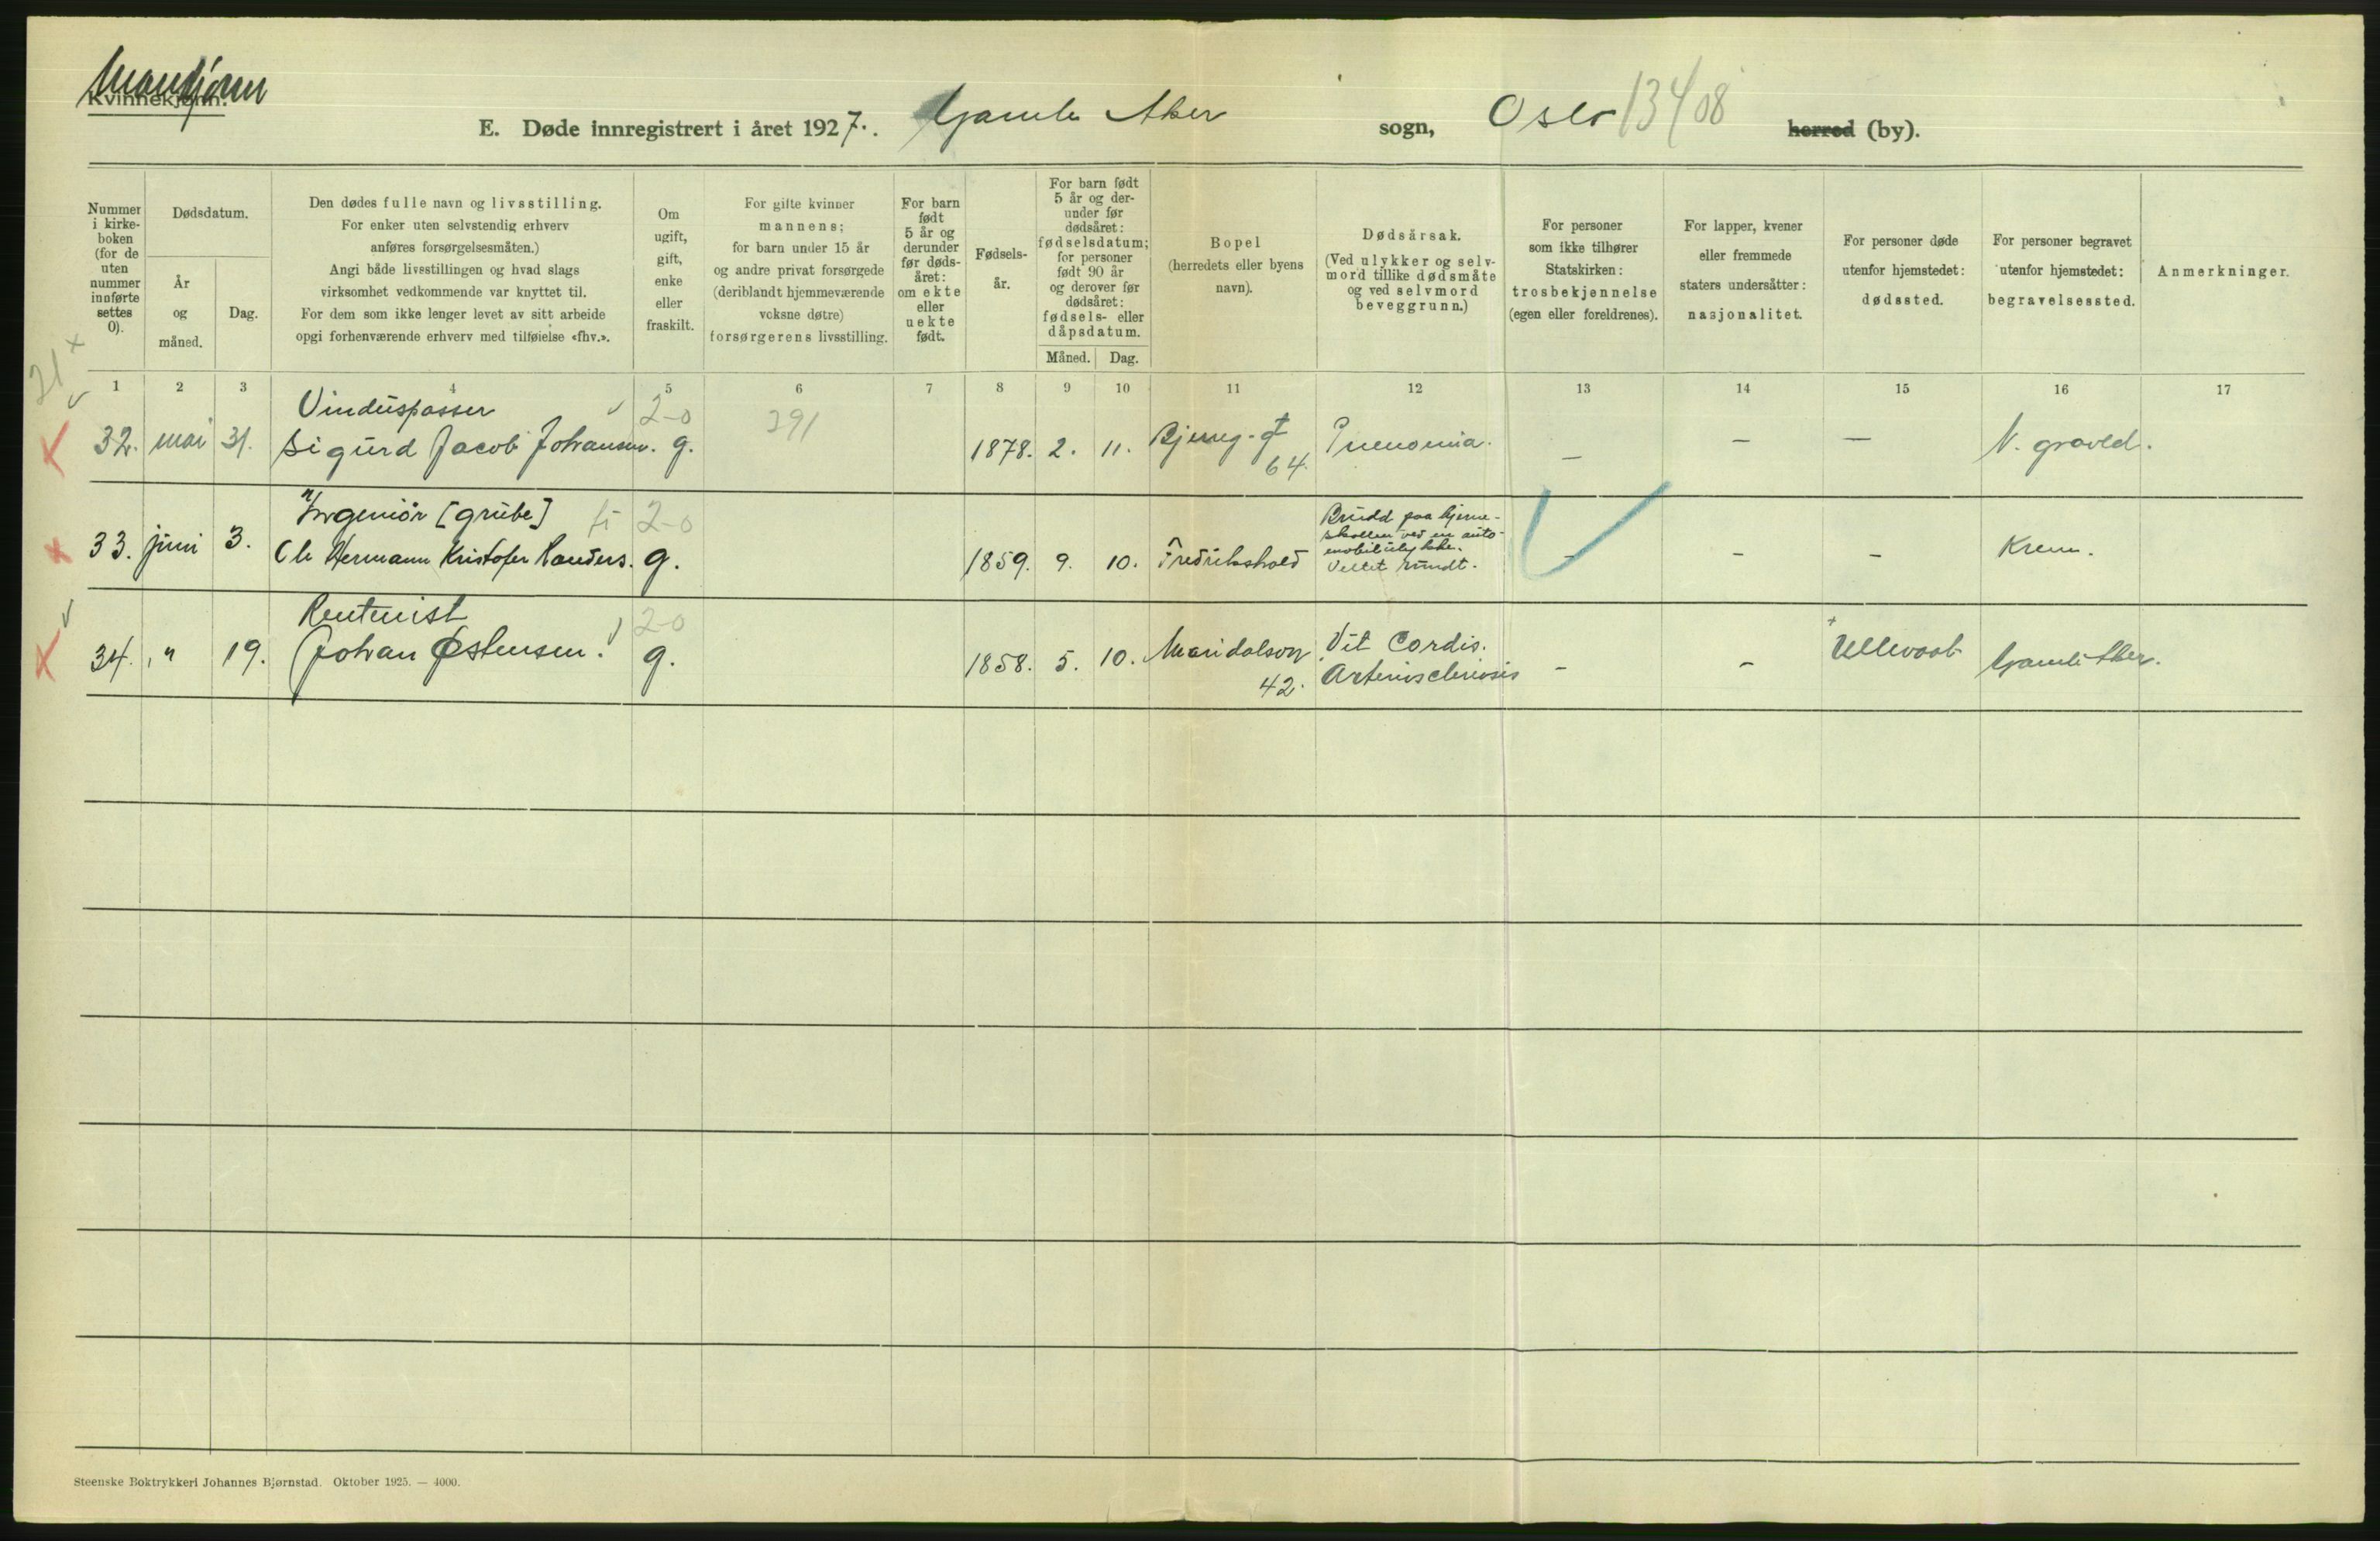 Mandkjønn
Kvinnekjønn.
E. Døde innregistrert i året 1927. Gamle Aker sogn, Oslo 13408 herred (by).
Nummer i kirkeboken (for de uten nummer innførte settes 0).
Dødsdatum.
År og måned.
Dag.
Den dødes fulle navn og livsstilling.
For enker uten selvstendig erhverv
anføres forsørgelsesmåten.)
Angi både livsstillingen og hvad slags
virksomhet vedkommende var knyttet til.
For dem som ikke lenger levet av sitt arbeide
opgi forhenværende erhverv med tilføielse «fhv.».
Om ugift, gift, enke eller fraskilt.
For gifte kvinner
mannens;
for barn under 15 år
og andre privat forsørgede
(deriblandt hjemmeværende
voksne døtre)
forsørgerens livsstilling.
For barn født 5 år og derunder før dødsåret: om ekte eller uekte født.
Fødselsår.
For barn født 5 år og derunder før dødsåret: fødselsdatum; for personer født 90 år og derover før dødsåret: fødsels- eller dåpsdatum.
Måned. Dag.
Bopel
(herredets eller byens navn).
Dødsårsak.
(Ved ulykker og selvmord tillike dødsmåte og ved selvmord beveggrunn.)
For personer
som ikke tilhører
Statskirken:
trosbekjennelse
(egen eller foreldrenes).
For lapper, kvener
eller fremmede
staters undersåtter:
nasjonalitet.
For personer døde
utenfor hjemstedet:
dødssted.
For personer begravet
utenfor hjemstedet:
begravelsessted.
Anmerkninger.
21 x
1 2 3 4 5 6 7 8 9 10 11 12 13 14 15 16 17
Vinduspasser 2-0 391
32. mai 31. Sigurd Jacob Johansen. g. 1878. 2. 11. Bjerreg. 64. Pnenomia. – – – V. gravld.
Ingeniør [grube] 2-0
33. juni 3. Ole Hermann Kristofer g. 1859. 9. 10. Fredrikshald
Brudd paa hjerne-
skallen ved en auto-
mobilulykke.
Veltet rundt.
– – – Krem.
Rentenist 2-0
34. " 19. Johan Østensen. g. 1858. 5. 10. Maridalsvn 42. Vit Cordis.
Arteriosclerosis – – Ullevaal Gamle Aker.
Steenske Boktrykkeri Johannes Bjørnstad. Oktober 1925. — 4000.